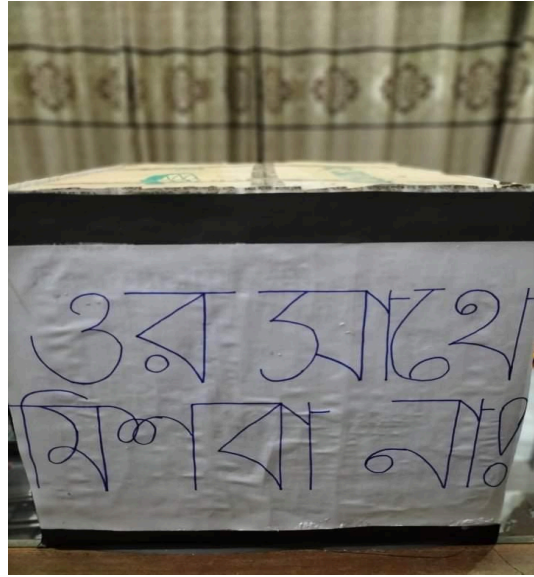 ওর সাথে
মিশবা না!